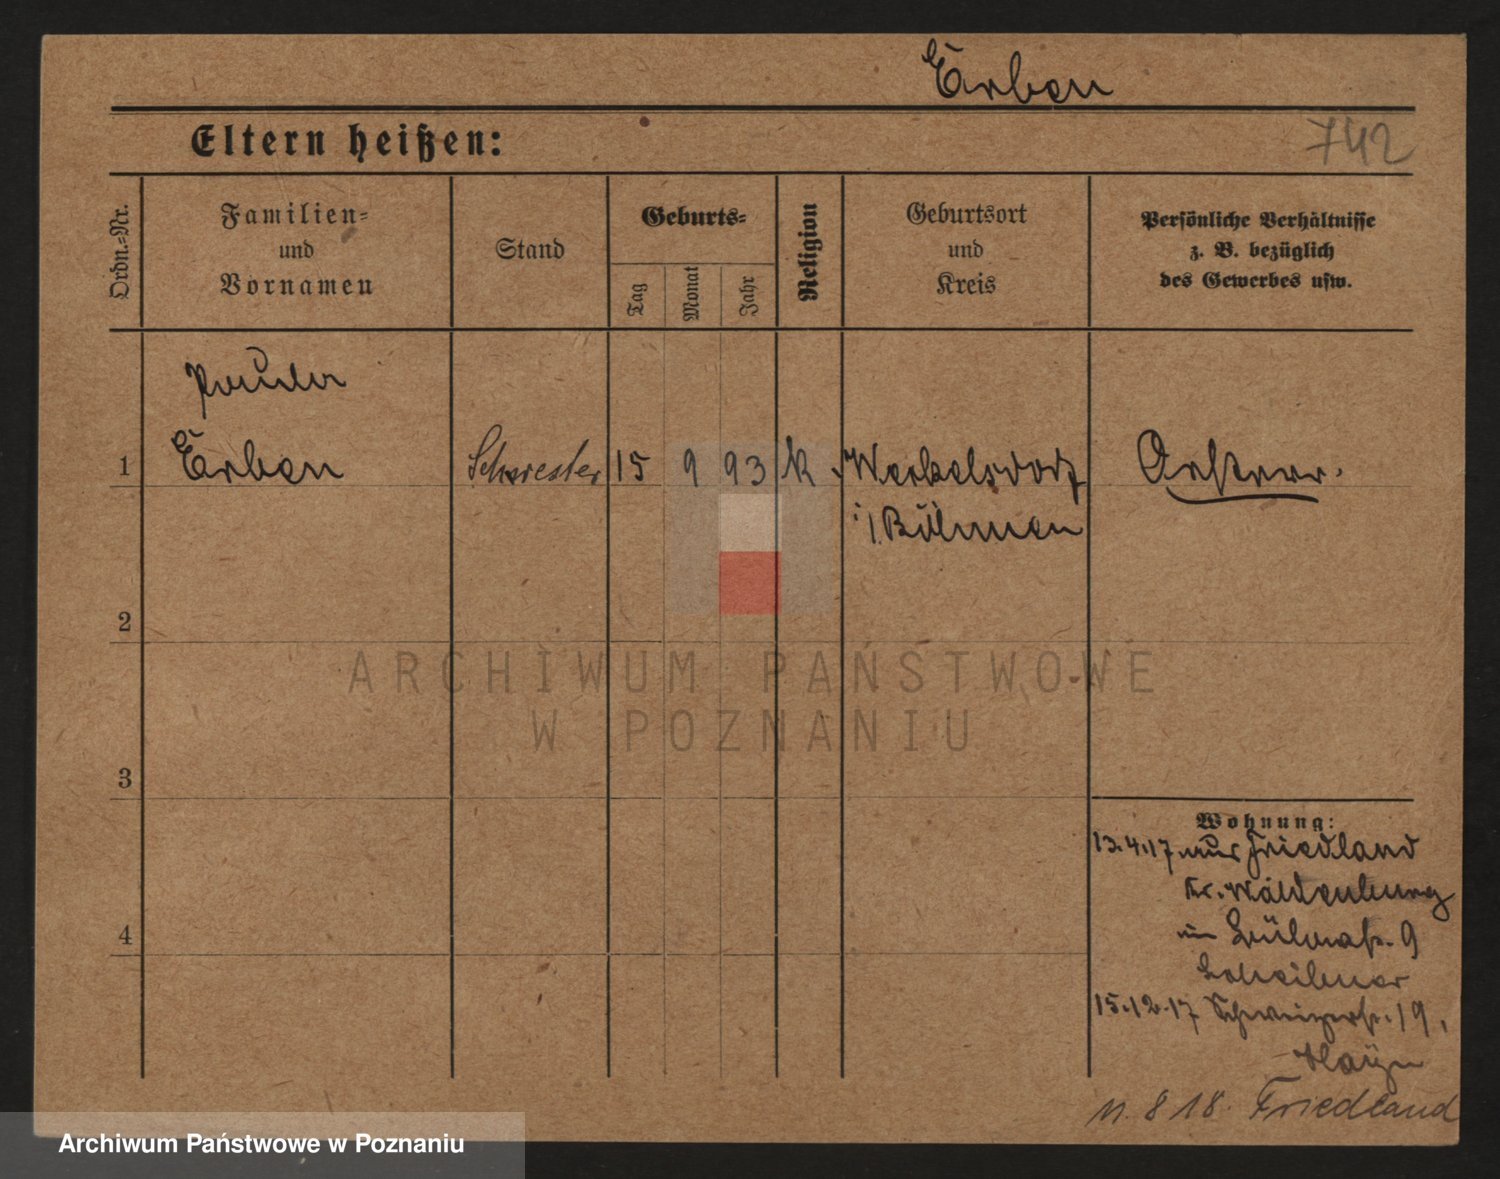 Erben
Eltern heißen:
742
Ordn.=Nr.
Familien=
und
Vornamen
Stand
Geburts=
Tag
Monat
Jahr
Religion
Geburtsort
und
Kreis
Persönliche Verhältnisse
z. B. bezüglich
des Gewerbes usw.
Paula
1 Erben Schwester 15 9 93 k. Weckelsdorf Oesterr.
i/Böhmen
2
3
4
Wohnung:
13.4.17 aus Friedland
Kr. Waldenburg
9
15.12.17 19,
11. 8 18. Friedland
ARCHIWUM PAŃSTWOWE
W POZNANIU
Archiwum Państwowe w Poznaniu